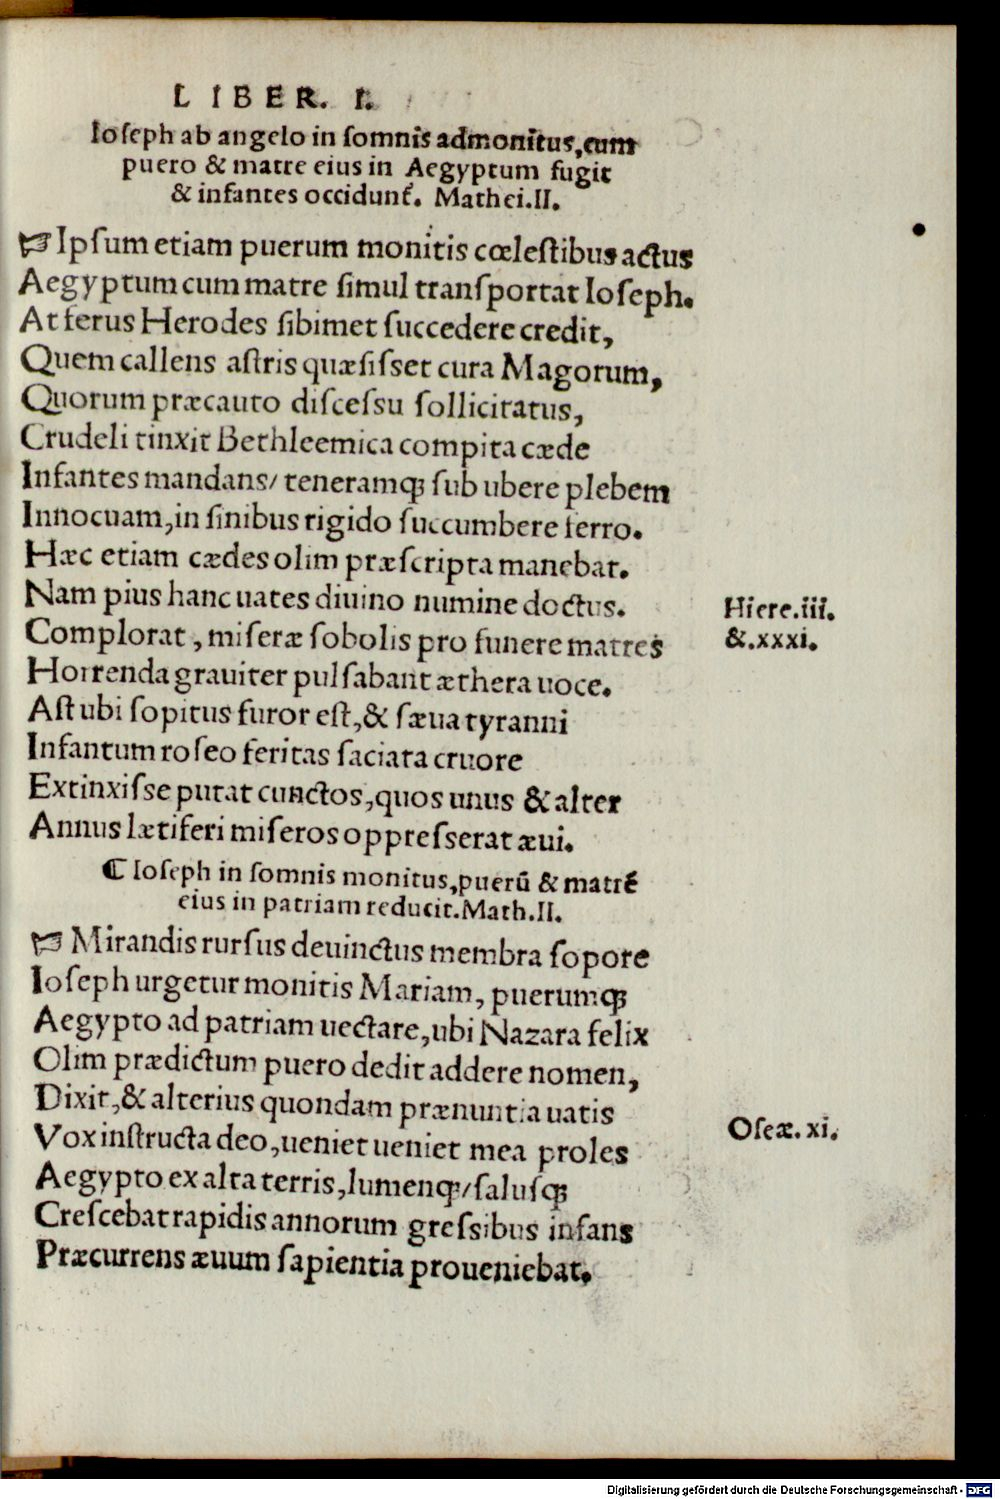 LIBER. I.
Ioſeph ab angelo in ſomnĩs admonĩtus, cum
puero & matre eius in Aegyptum fugit
& infantes occidunt᷑. Mathei.II.
☞ Ipſum etiam puerum monitis cœleſtibus actus
Aegyptum cum matre ſimul tranſportat Ioſeph.
At ferus Herodes ſibimet ſuccedere credit,
Quem callens aſtris quæſiſset cura Magorum,
Quorum præcauto diſceſsu ſollicitatus,
Crudeli tinxit Bethleemica compita cæde
Infantes mandans/ teneramqꝫ ſub ubere plebem
Innocuam, in ſinibus rigido ſuccumbere ferro.
Hæc etiam cædes olim præſcripta manebat.
Nam pius hanc uates diuino numine doctus.
Hiere.iii.
Complorat, miſeræ ſobolis pro funere matres
&.xxxi.
Horrenda grauiter pulſabant æthera uoce.
Aſt ubi ſopitus furor eſt, & ſæua tyranni
Infantum roſeo feritas ſaciata cruore
Extinxiſse putat cunctos, quos unus & alter
Annus lætiferi miſeros oppreſserat æui.
¶ Ioſeph in ſomnis monitus, puerũ & matrẽ
eius in patriam reducit. Math.II.
☞ Mirandis rurſus deuinctus membra ſopore
Ioſeph urgetur monitis Mariam, puerumqꝫ
Aegypto ad patriam uectare, ubi Nazara felix
Olim prædictum puero dedit addere nomen,
Dixit, & alterius quondam prænuntia uatis
Oſeæ. xi.
Vox inſtructa deo, ueniet ueniet mea proles
Aegypto ex alta terris, lumenqꝫ/ ſaluſqꝫ
Creſcebat rapidis annorum greſsibus infans
Præcurrens æuum ſapientia proueniebat.
Digitalisierung gefördert durch die Deutsche Forschungsgemeinschaft - DFG